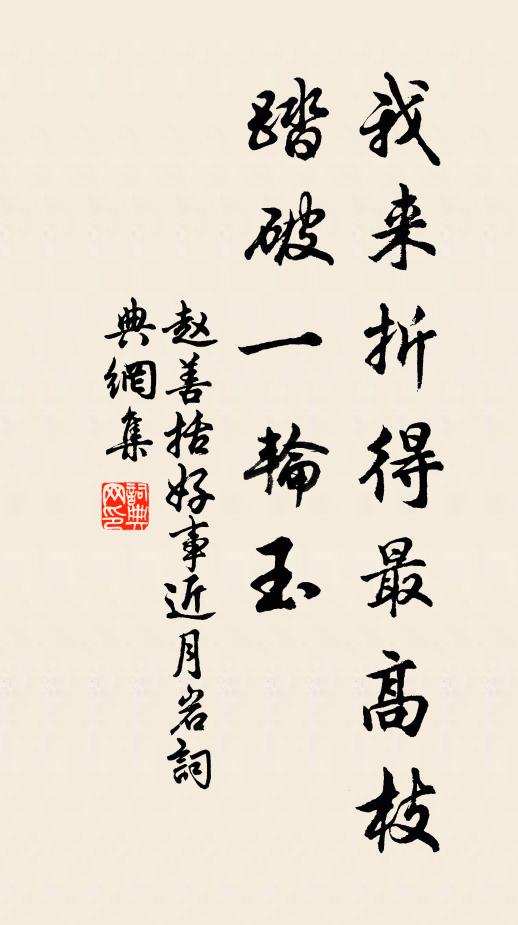 我来折得最高枝
踏破一輪玉
赵善括好事近月岩詞
典網集
詞典网印